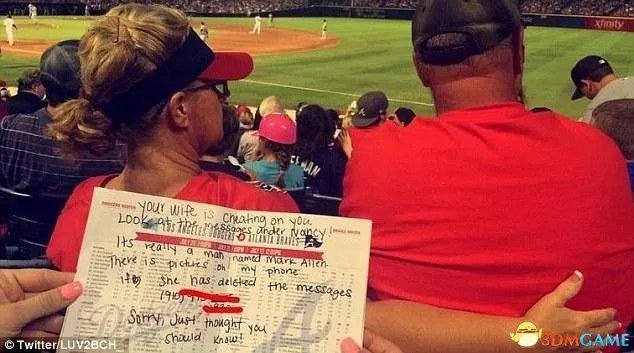 xfinity
Your wife is cheating on you
Look at the messages under Nancy!
LOS ANGELES DODGERS @ ATLANTA BRAVES
Its really a man named Mark Allen
There is pictures on my phone
if she has deleted the messages
(910)
Sorry, Just thought you
should know!
Twitter/LUV2BCH
3DMGAME